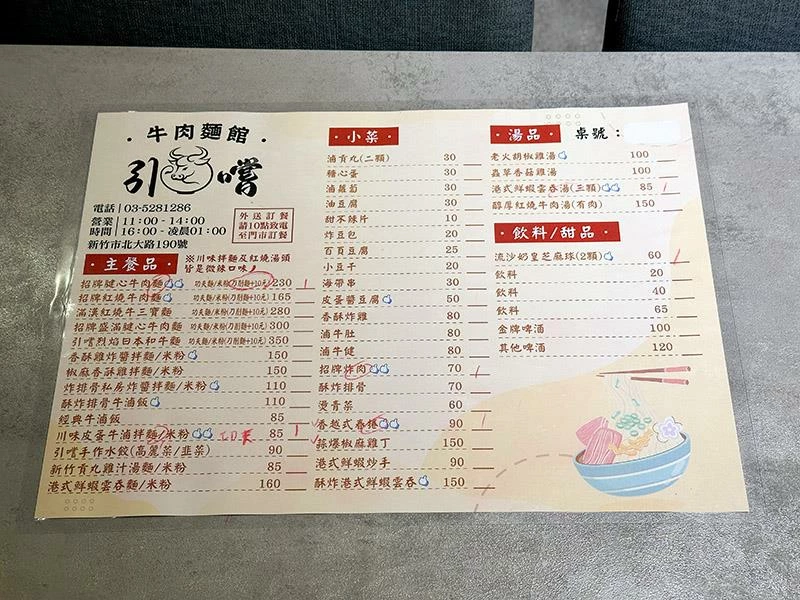 牛肉麵館
引 嚐
電話 03-5281286
營業 11:00 - 14:00
時間 16:00 - 凌晨01:00
新竹市北大路190號
外送訂餐
請10點致電
至門市訂餐
主餐品
※川味拌麵及紅燒湯頭
皆是微辣口味!
招牌腱心牛肉麵 功夫麵/米粉(刀削麵+10元) 230 1
招牌紅燒牛肉麵 功夫麵/米粉(刀削麵+10元) 165
滿漢紅燒牛三寶麵 功夫麵/米粉(刀削麵+10元) 280
招牌盛滿腱心牛肉麵 功夫麵/米粉(刀削麵+10元) 300
引嚐烈焰日本和牛麵 功夫麵/米粉(刀削麵+10元) 350
香酥雞炸醬拌麵/米粉 150
椒麻香酥雞拌麵/米粉 150
炸排骨私房炸醬拌麵/米粉 110
酥炸排骨牛滷飯 110
經典牛滷飯 85
川味皮蛋牛滷拌麵/米粉 85 1
引嚐手作水餃(高麗菜/韭菜) 90
新竹貢丸雞汁湯麵/米粉 85
港式鮮蝦雲吞麵/米粉 160
小菜
滷貢丸(二顆) 30
糖心蛋 30
滷蘿蔔 30
油豆腐 30
甜不辣片 10
炸豆包 20
百頁豆腐 25
小豆干 20
海帶串 30
皮蛋醬豆腐 50
香酥炸雞 80
滷牛肚 80
滷牛腱 80
招牌炸肉 70 1
酥炸排骨 70
燙青菜 60
香越式春捲 90 1
蒜爆椒麻雞丁 150
港式鮮蝦炒手 90
酥炸港式鮮蝦雲吞 150
湯品 桌號:
老火胡椒雞湯 100
蟲草香菇雞湯 100
港式鮮蝦雲吞湯(三顆) 85 1
醇厚紅燒牛肉湯(有肉) 150
飲料/甜品
流沙奶皇芝麻球(2顆) 60 1
飲料 20
飲料 40
飲料 65
金牌啤酒 100
其他啤酒 120